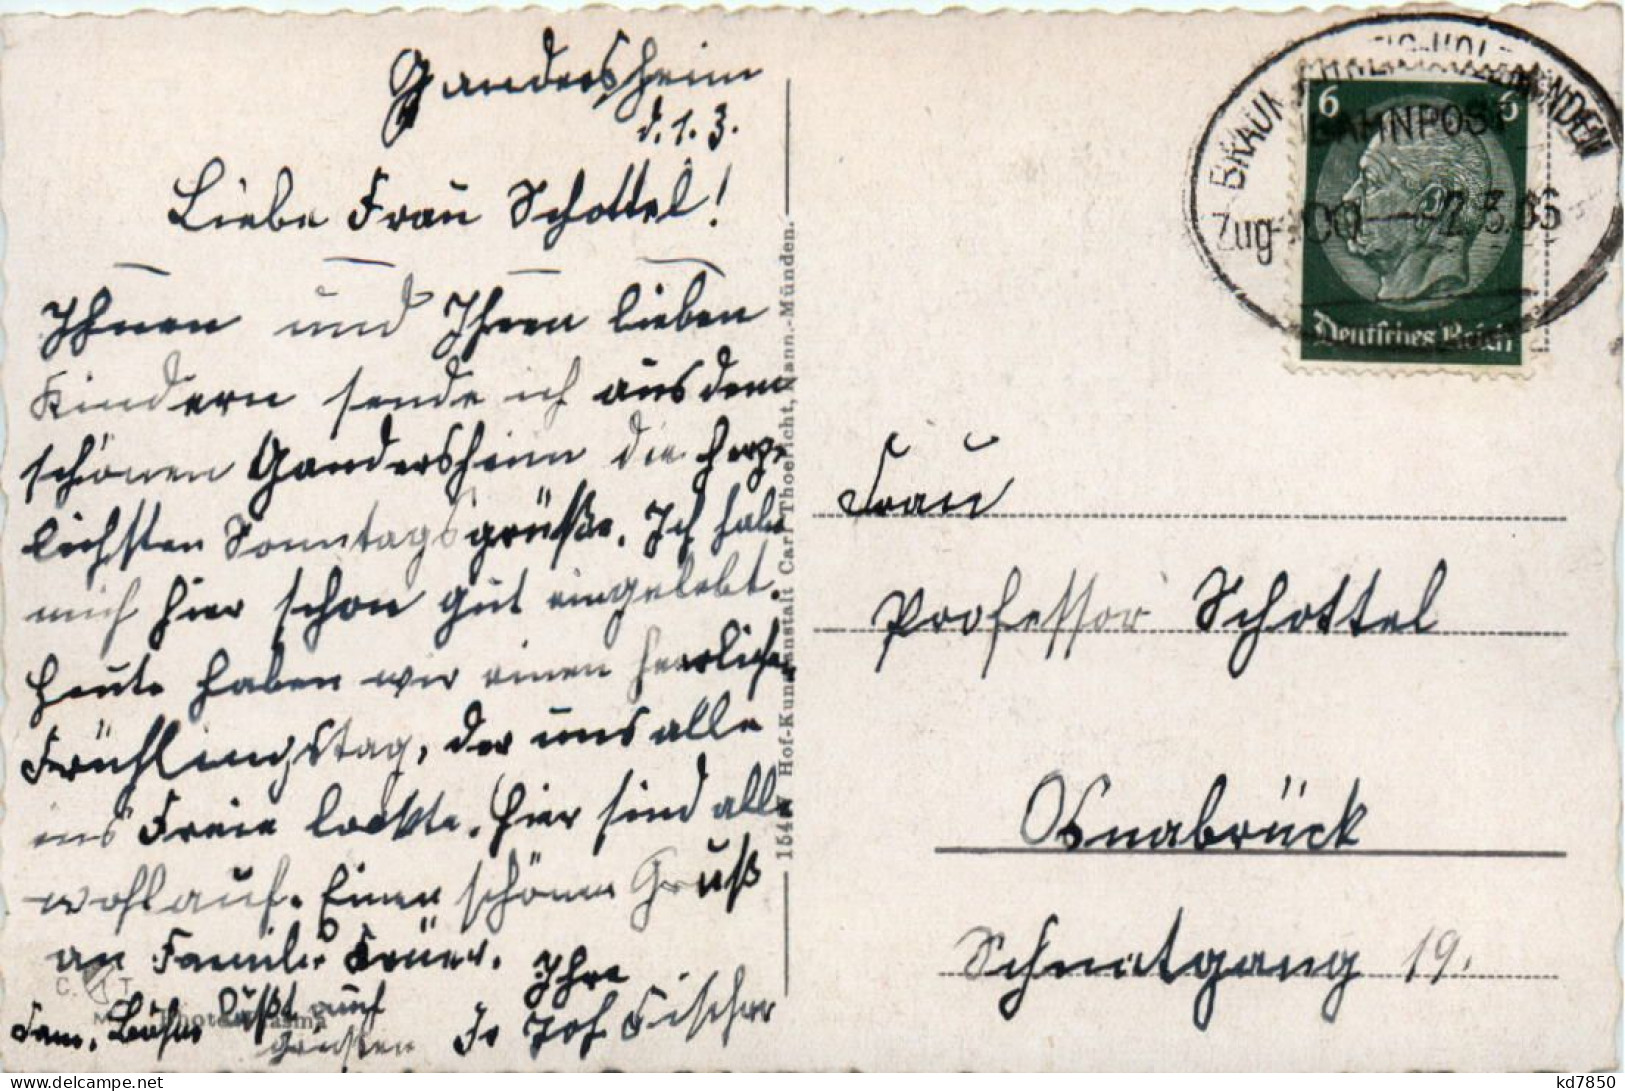 Gandersheim
d. 1. 3.
Liebe Frau Schottel!
Ihnen und Ihren lieben
Kindern sende ich aus dem
schönen Gandersheim die herz-
lichsten Sonntagsgrüße. Ich habe
mich hier schon gut eingelebt.
Heute haben wir einen herrlichen
Frühlingstag, der uns alle
ins Freie lockte. Hier sind alle
wohlauf. Einen schönen Gruß
an Familie
Ihre
Fam. läßt auch
grüßen
Fischer
Hof-Kunstanstalt Carl Thoericht, Hann.-Münden.
6 6
Deutsches Reich
BAHNPOST
Zug
Frau
Professor Schottel
Osnabrück
19.
delcampe.net
kd7850